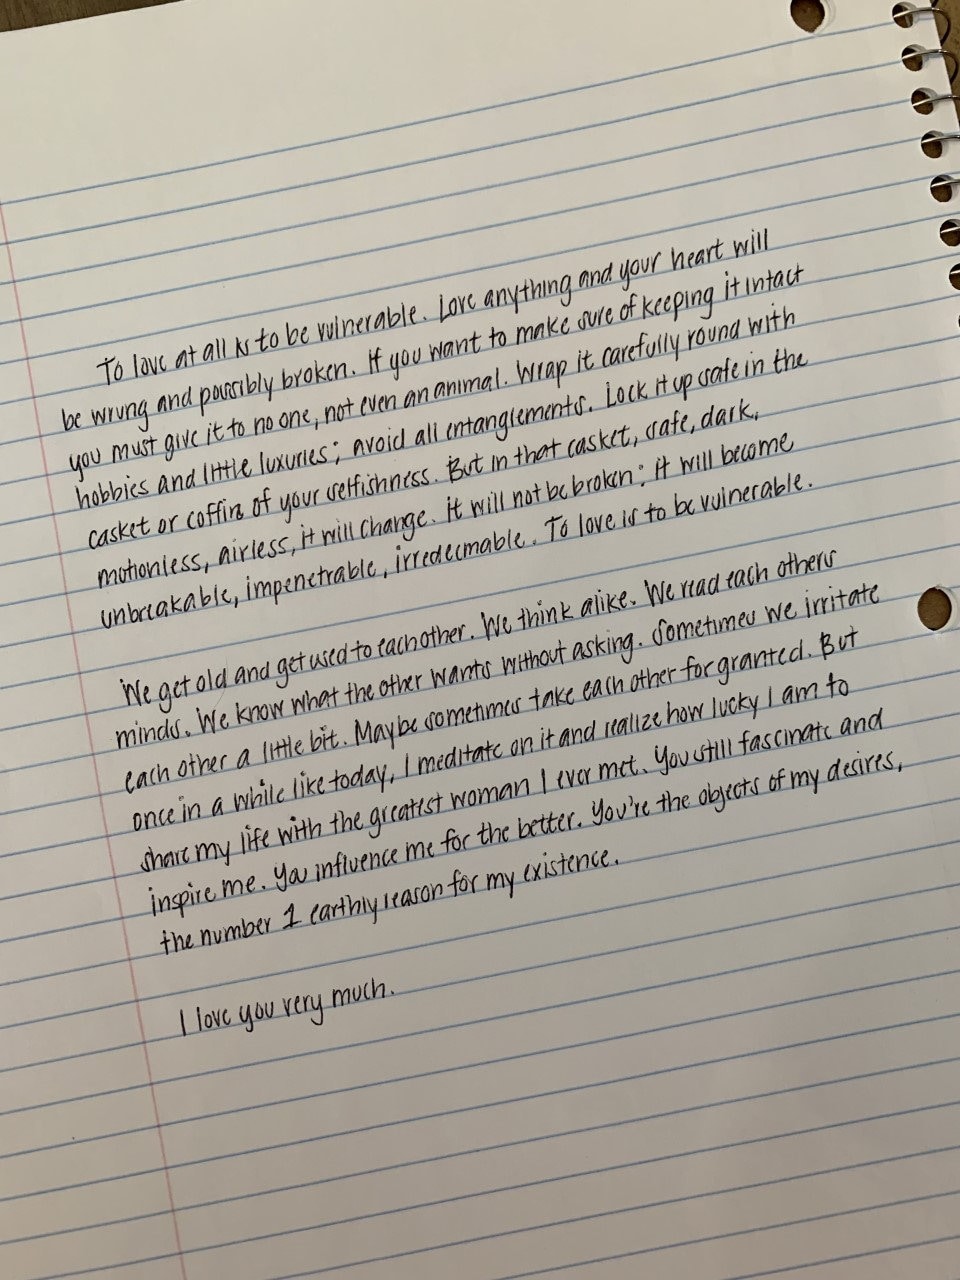 To love at all is to be vulnerable. Love anything and your heart will
be wrung and possibly broken. If you want to make sure of keeping it intact
you must give it to no one, not even an animal. Wrap it carefully round with
hobbies and little luxuries; avoid all entanglements. Lock it up safe in the
casket or coffin of your selfishness. But in that casket, safe, dark,
motionless, airless, it will change. it will not be broken; it will become
unbreakable, impenetrable, irredeemable. To love is to be vulnerable.
We get old and get used to each other. We think alike. We read each others
minds. We know what the other wants without asking. Sometimes we irritate
each other a little bit. Maybe sometimes take each other for granted. But
once in a while like today, I meditate on it and realize how lucky I am to
share my life with the greatest woman I ever met. You still fascinate and
inspire me. You influence me for the better. You're the objects of my desires,
the number 1 earthly reason for my existence.
I love you very much.